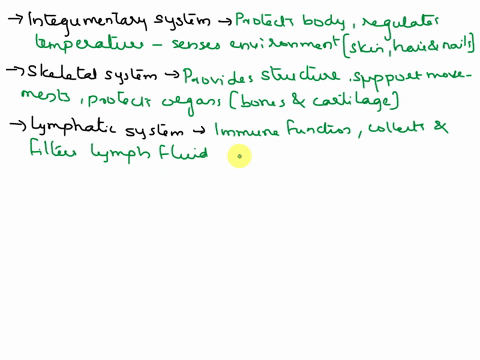 → Integumentary system → Protects body, regulates
temperature – senses environment [skin, hair & nails]
→ Skeletal system → Provides structure, support move-
ments, protects organs [bones & cartilage]
→ Lymphatic system → Immune function, collects &
filters lymph fluid